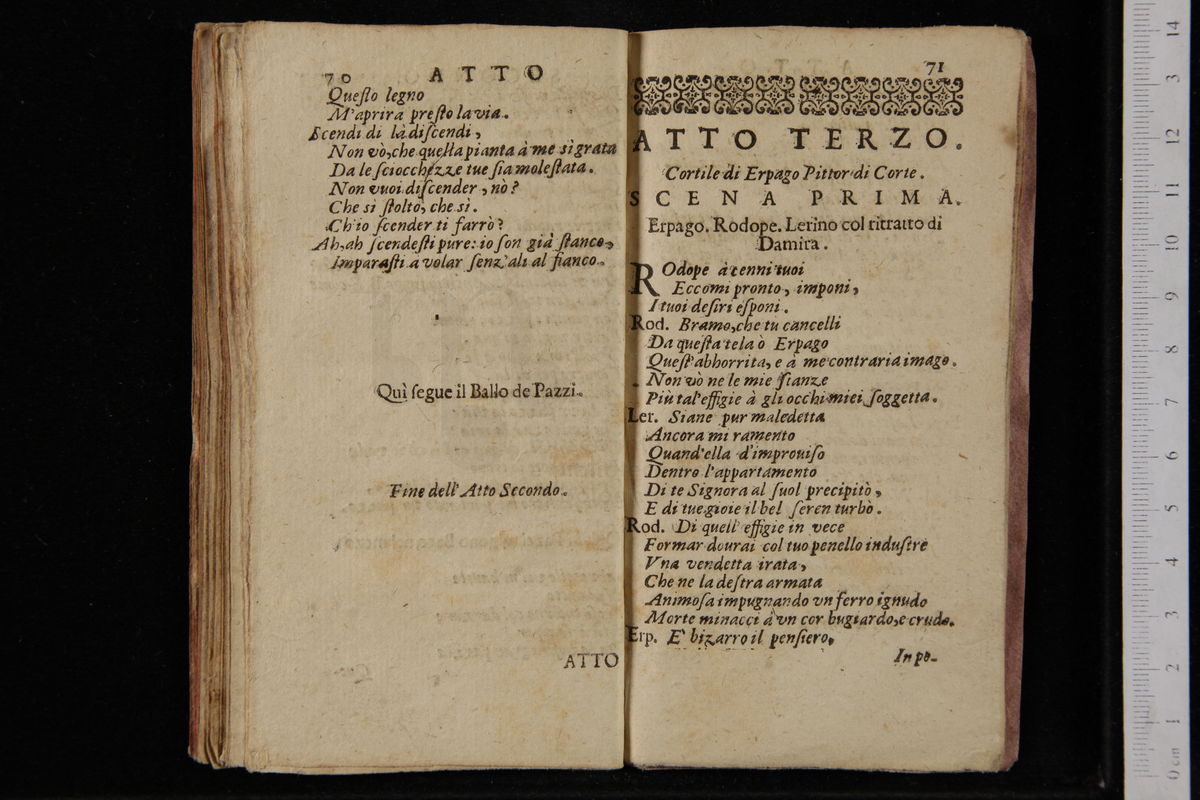 70 ATTO
Queſto legno
M'aprira preſto la via.
Scendi di là diſcendi,
Non vò, che quella pianta à me sì grata
Da le ſciocchezze tue ſia moleſtata.
Non vuoi diſcender, nò?
Che sì ſtolto, che sì.
Ch'io ſcender ti farrò?
Ah, ah ſcendeſti pure: io ſon già ſtanco,
Imparaſti a volar ſenz'ali al fianco.
Quì ſegue il Ballo de Pazzi.
Fine dell'Atto Secondo.
ATTO
71
ATTO TERZO.
Cortile di Erpago Pittor di Corte.
SCENA PRIMA.
Erpago. Rodope. Lerino col ritratto di
Damira.
ROdope à cenni tuoi
Eccomi pronto, imponi,
I tuoi deſiri eſponi.
Rod. Bramo, che tu cancelli
Da queſta tela ò Erpago
Queſt'abhorrita, e a me contraria imago.
Non vò ne le mie ſtanze
Più tal'effigie à gli occhi miei ſoggetta.
Ler. Siane pur maledetta
Ancora mi ramento
Quand'ella d'improuiſo
Dentro l'appartamento
Di te Signora al ſuol precipitò,
E di tue gioie il bel ſeren turbò.
Rod. Di quell'effigie in vece
Formar dourai col tuo penello induſtre
Vna vendetta irata,
Che ne la deſtra armata
Animoſa impugnando vn ferro ignudo
Morte minacci à vn cor bugiardo, e crudo.
Erp. E' bizarro il penſiero,
In pe-
14
3
12
11
10
9
8
7
6
5
4
3
2
1
0 cm